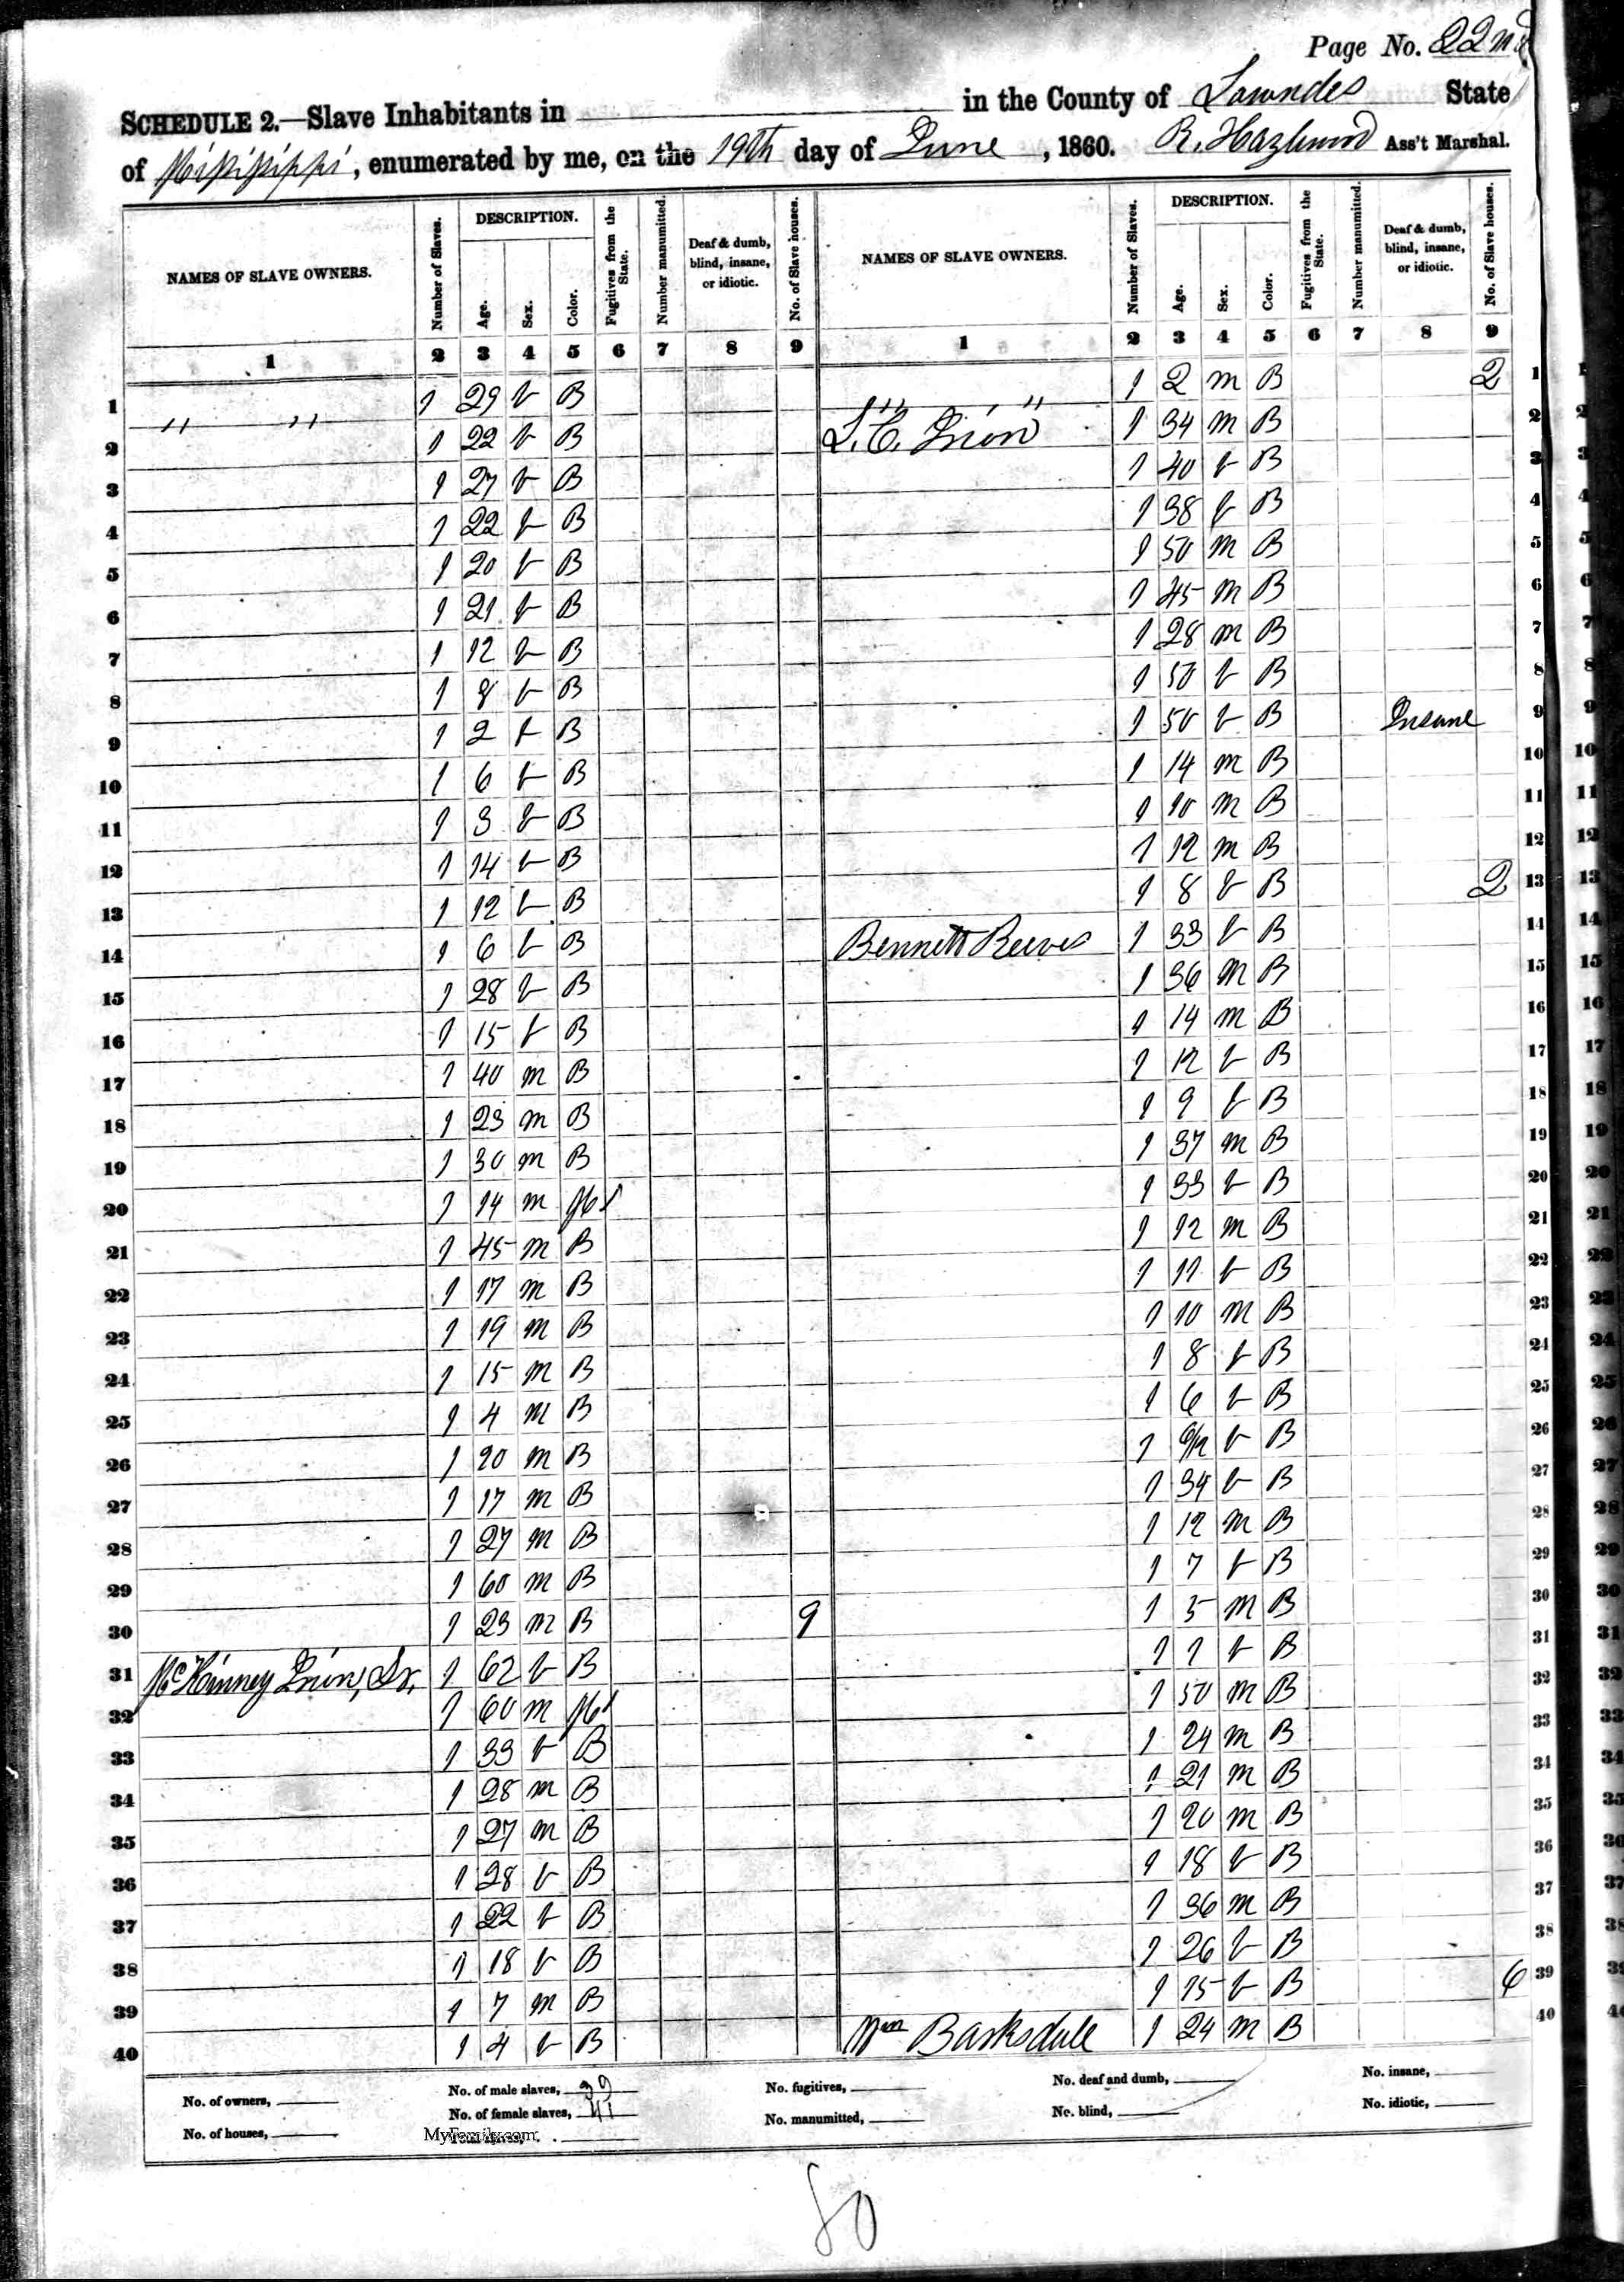 Page No. 22nd
SCHEDULE 2.—Slave Inhabitants in in the County of Lowndes State
of Mississippi, enumerated by me, on the 19th day of June, 1860. R. Hazlewood Ass't Marshal.
NAMES OF SLAVE OWNERS. Number of Slaves. DESCRIPTION. Age. Sex. Color. Fugitives from the State. Number manumitted. Deaf & dumb, blind, insane, or idiotic. No. of Slave houses. NAMES OF SLAVE OWNERS. Number of Slaves. DESCRIPTION. Age. Sex. Color. Fugitives from the State. Number manumitted. Deaf & dumb, blind, insane, or idiotic. No. of Slave houses.
1 2 3 4 5 6 7 8 9 1 2 3 4 5 6 7 8 9
1 " " 1 29 f B " " 1 2 m B 2 1
2 1 22 f B 1 34 m B 2
3 1 27 f B 1 40 f B 3
4 1 22 f B 1 38 f B 4
5 1 20 f B 1 50 m B 5
6 1 21 f B 1 45 m B 6
7 1 12 f B 1 28 m B 7
8 1 8 f B 1 50 f B 8
9 1 2 f B 1 50 f B Insane 9
10 1 6 f B 1 14 m B 10
11 1 3 f B 1 10 m B 11
12 1 14 f B 1 12 m B 12
13 1 12 f B 1 8 f B 2 13
14 1 6 f B Bennett Reeves 1 33 f B 14
15 1 28 f B 1 36 m B 15
16 1 15 f B 1 14 m B 16
17 1 40 m B 1 12 f B 17
18 1 23 m B 1 9 f B 18
19 1 30 m B 1 37 m B 19
20 1 14 m M 1 33 f B 20
21 1 45 m B 1 12 m B 21
22 1 17 m B 1 11 f B 22
23 1 19 m B 1 10 m B 23
24 1 15 m B 1 8 f B 24
25 1 4 m B 1 6 f B 25
26 1 20 m B 1 6/12 f B 26
27 1 17 m B 1 34 f B 27
28 1 27 m B 1 12 m B 28
29 1 60 m B 1 7 f B 29
30 1 23 m B 9 1 5 m B 30
31 McKinney Irion, Sr. 1 62 f B 1 1 f B 31
32 1 60 m M 1 50 m B 32
33 1 33 f B 1 24 m B 33
34 1 28 m B 1 21 m B 34
35 1 27 m B 1 20 m B 35
36 1 28 f B 1 18 f B 36
37 1 22 f B 1 36 m B 37
38 1 18 f B 1 26 f B 38
39 1 7 m B 1 15 f B 6 39
40 1 4 f B Wm Barksdale 1 24 m B 40
No. of owners, No. of male slaves, 39 No. fugitives, No. deaf and dumb, No. insane,
No. of houses, No. of female slaves, 41 No. manumitted, No. blind, No. idiotic,
MyFamily.com
80